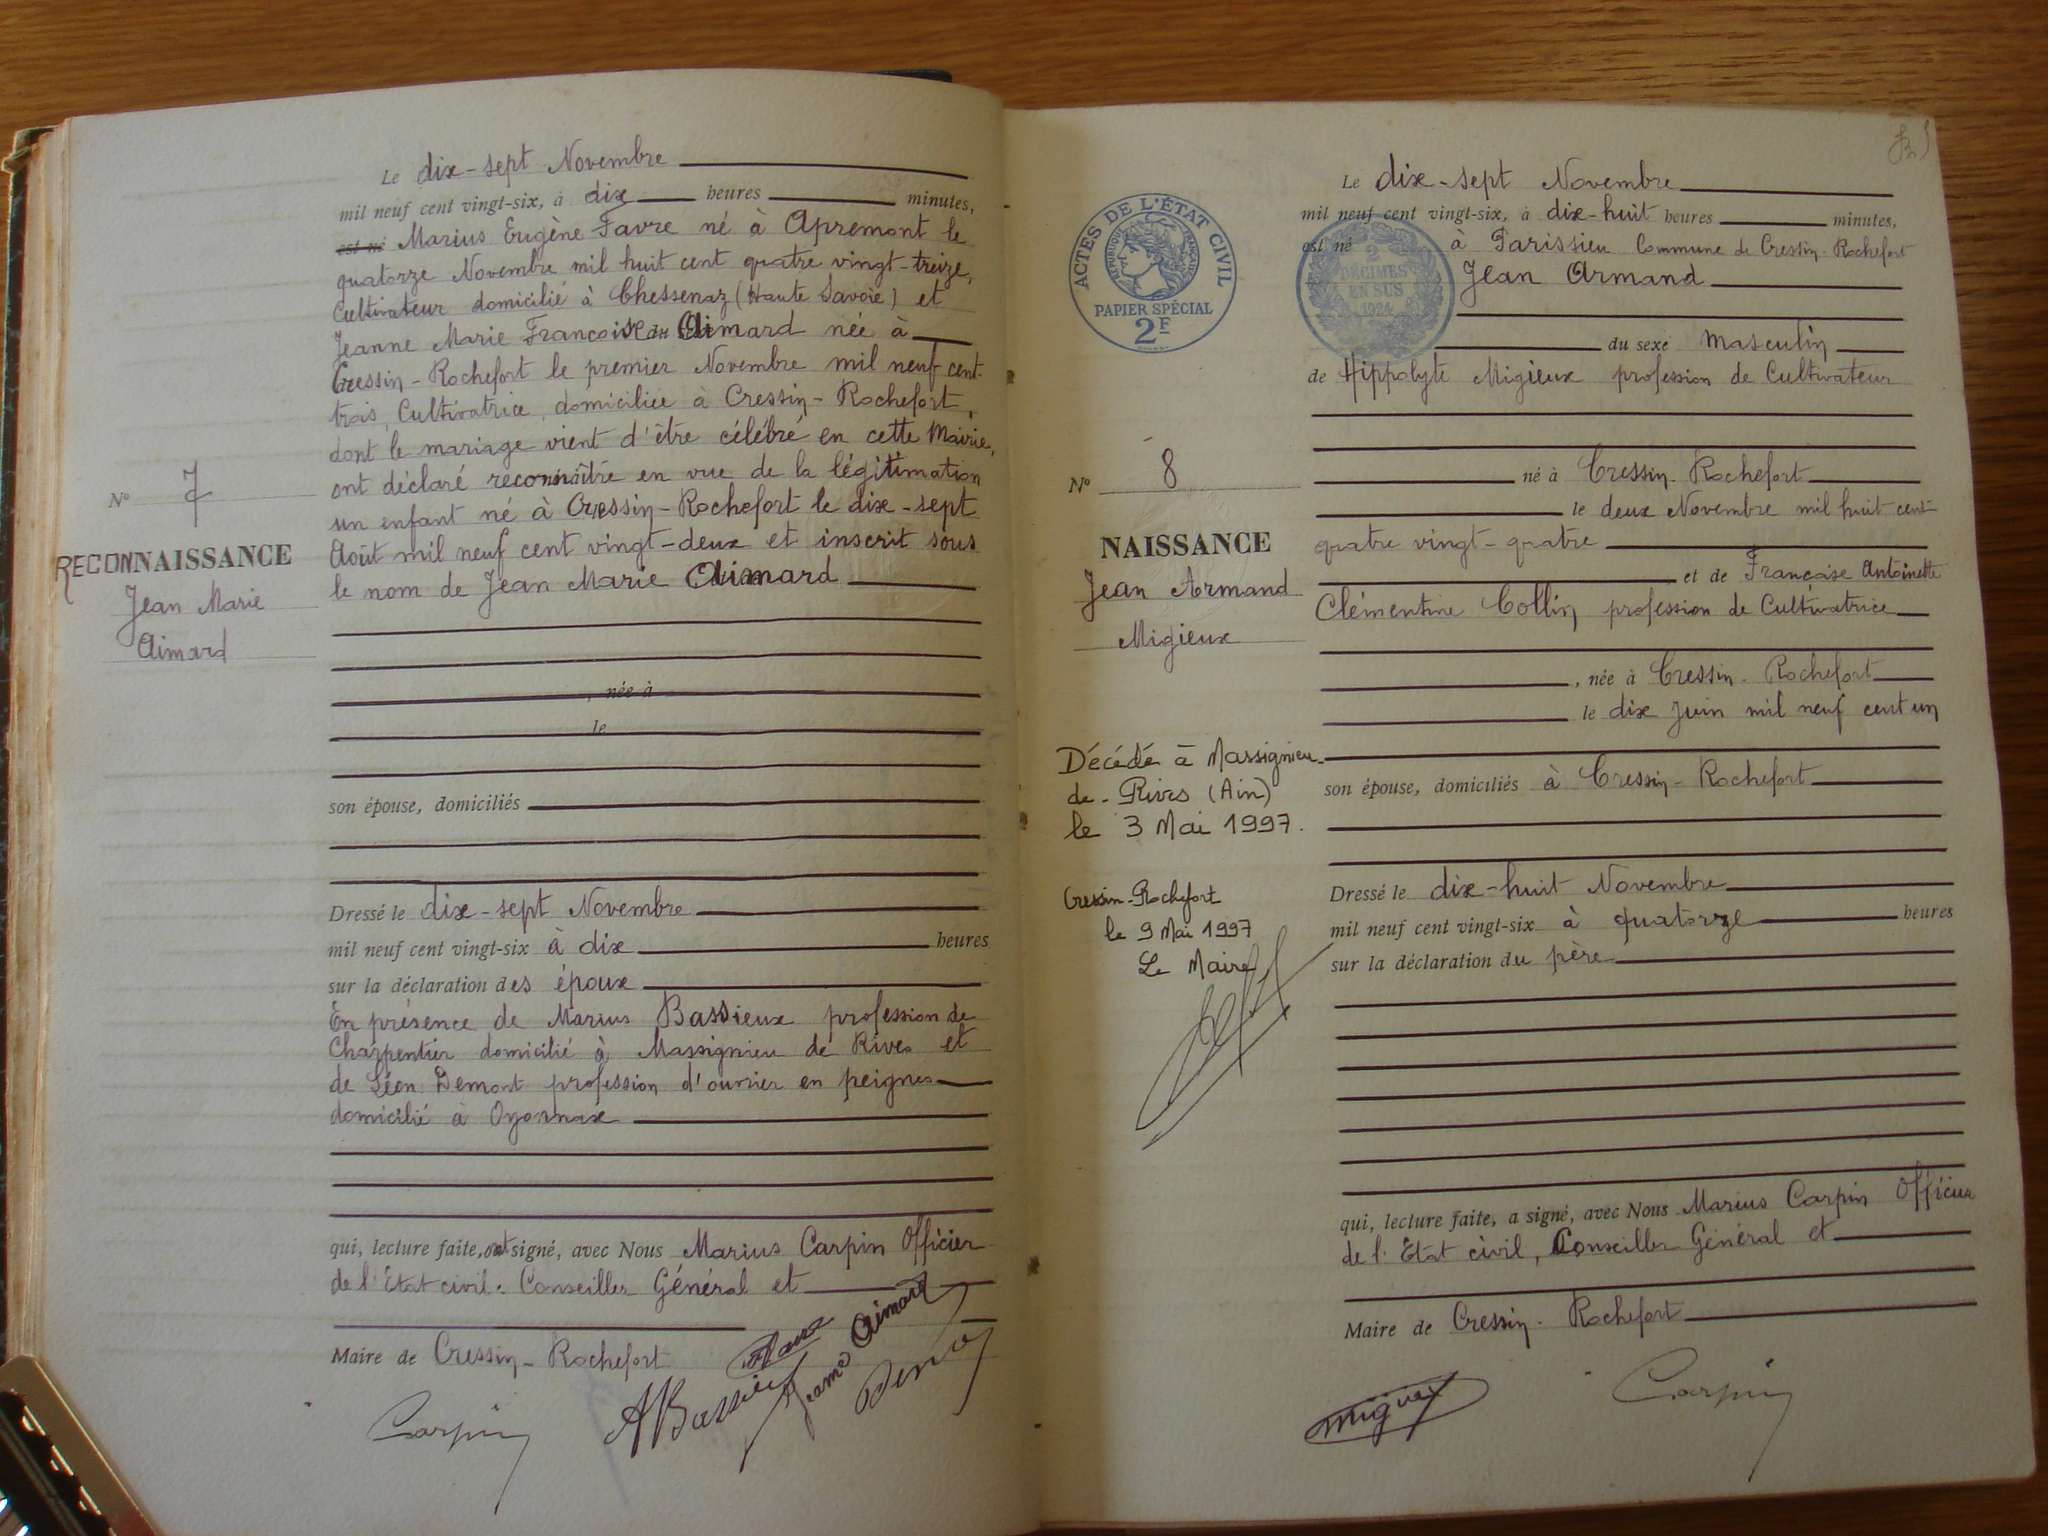 Le dix-sept Novembre
mil neuf cent vingt-six, à dix heures minutes,
est né Marius Eugène Favre né à Apremont le
quatorze Novembre mil huit cent quatre vingt-treize,
Cultivateur domicilié à Chessenaz (Haute Savoie) et
Jeanne Marie Françoise Aimard née à
Cressin-Rochefort le premier Novembre mil neuf cent
trois, Cultivatrice, domiciliée à Cressin-Rochefort,
dont le mariage vient d'être célébré en cette Mairie,
ont déclaré reconnaître en vue de la légitimation
un enfant né à Cressin-Rochefort le dix-sept
Août mil neuf cent vingt-deux et inscrit sous
le nom de Jean Marie Aimard
Nº 7
RECONNAISSANCE
Jean Marie
Aimard
, née à
le
son épouse, domiciliés
Dressé le dix-sept Novembre
mil neuf cent vingt-six à dix heures
sur la déclaration des époux
En présence de Marius Bassieux profession de
Charpentier domicilié à Massignieu de Rives et
de Léon Demont profession d'ouvrier en peignes
domicilié à Oyonnax
qui, lecture faite, ont signé, avec Nous Marius Carpin Officier
de l'Etat civil. Conseiller Général et
Maire de Cressin-Rochefort
Carpin
ABassieux
Jeanne Aimard
ACTES DE L'ÉTAT CIVIL
RÉPUBLIQUE FRANÇAISE
PAPIER SPÉCIAL
2F
2
DÉCIMES
EN SUS
1924
Le dix-sept Novembre
mil neuf cent vingt-six, à dix-huit heures minutes,
est né à Parissieu Commune de Cressin-Rochefort
Jean Armand
du sexe masculin
de Hippolyte Migieux profession de Cultivateur
né à Cressin-Rochefort
le deux Novembre mil huit cent
quatre vingt-quatre
et de Françoise Antoinette
Clémentine Collin profession de Cultivatrice
, née à Cressin-Rochefort
le dix Juin mil neuf cent un
son épouse, domiciliés à Cressin-Rochefort
Nº 8
NAISSANCE
Jean Armand
Migieux
Décédé à Massignieu-
de-Rives (Ain)
le 3 Mai 1997.
Cressin-Rochefort
le 9 Mai 1997
Le Maire
Dressé le dix-huit Novembre
mil neuf cent vingt-six à quatorze heures
sur la déclaration du père
qui, lecture faite, a signé, avec Nous Marius Carpin Officier
de l'Etat civil, Conseiller Général et
Maire de Cressin-Rochefort
Migieux
Carpin